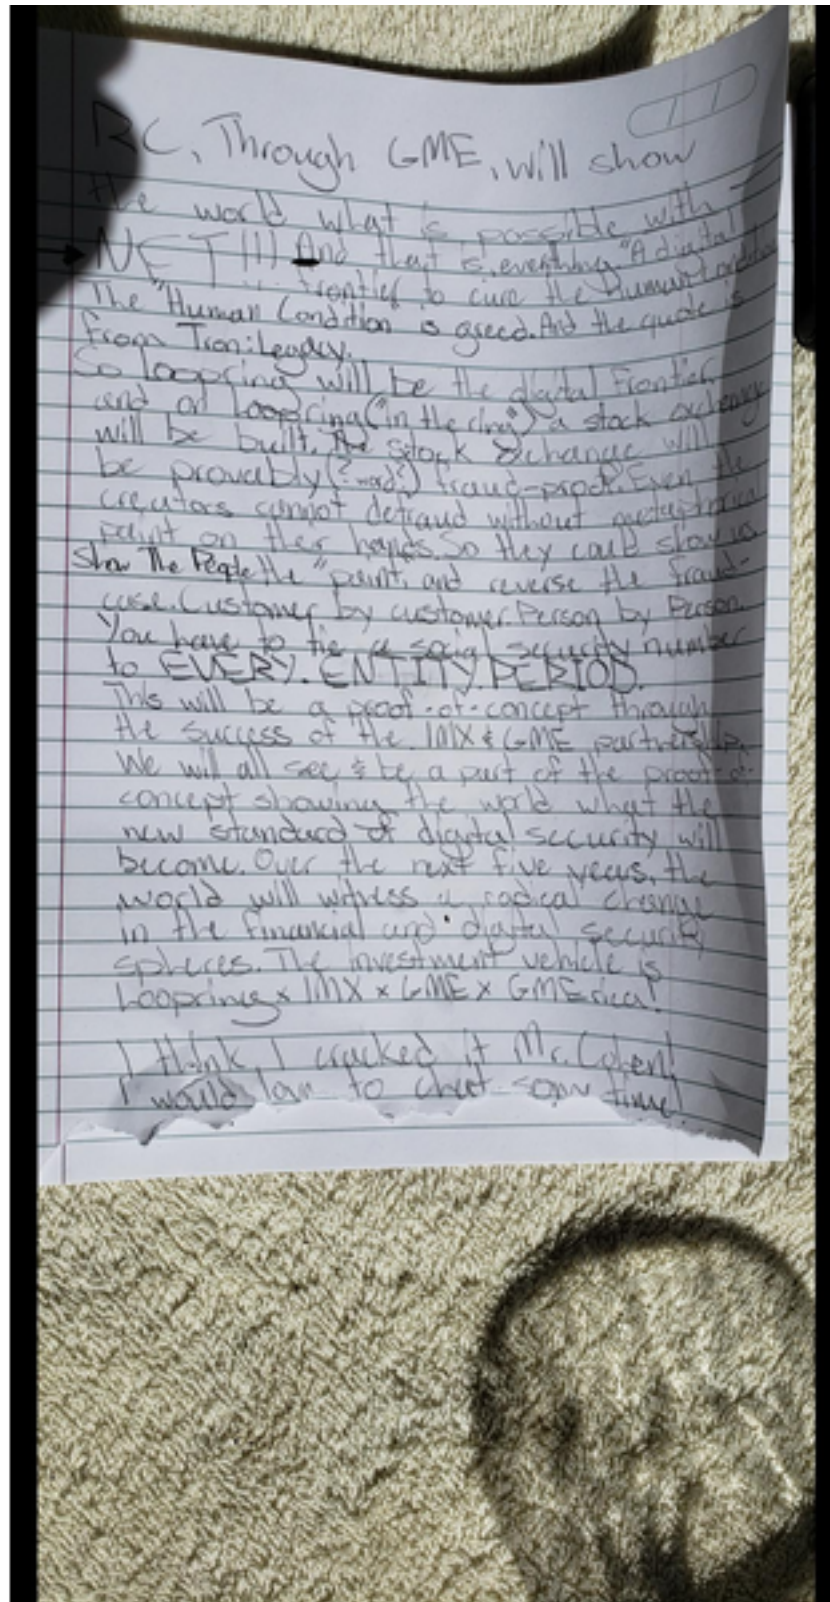 RC, Through GME, will show
the world what is possible with
NFT!!! And that is, everything. "A digital
frontier to cure the Human Condition
The "Human Condition" is greed. And the quote is
from Tron: Legacy.
So Loopring will be the digital Frontier,
and on Loopring ("in the ring") a stock exchange
will be built. The stock exchange will
be provably (? word?) fraud-proof. Even the
creators cannot defraud without metaphorical
paint on their hands. So they could show us
Show The People the "paint", and reverse the fraud-
case. Customer by customer. Person by Person.
You have to tie a social security number
to EVERY. ENTITY. PERIOD.
This will be a proof-of-concept through
the success of the IMX & GME partnership.
We will all see & be a part of the proof-of-
concept showing the world what the
new standard of digital security will
become. Over the next five years, the
world will witness a radical change
in the financial and digital security
spheres. The investment vehicle is
Loopring x IMX x GME x GMErica!
I think I cracked it Mr. Cohen!
I would to chat some time!